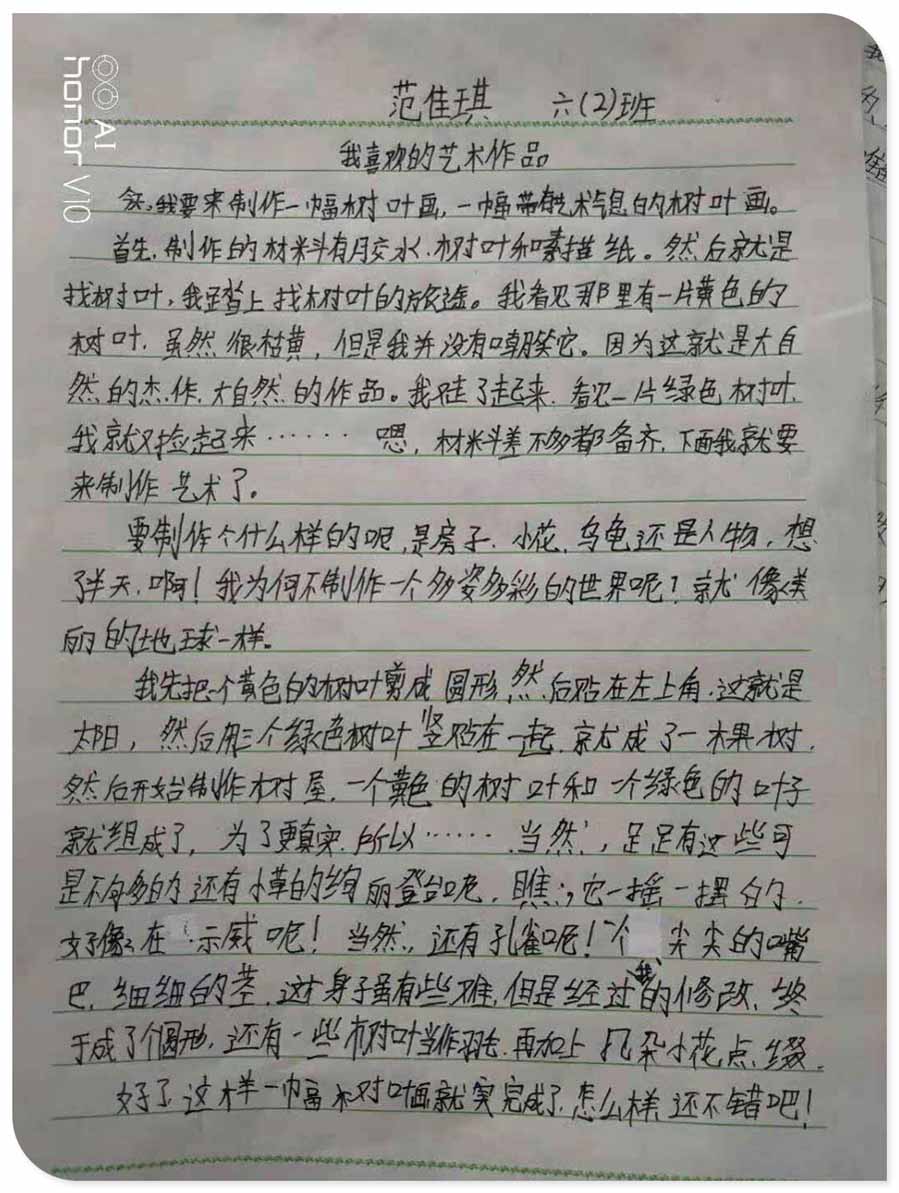 范佳琪 六(2)班
我喜欢的艺术作品
今天,我要来制作一幅树叶画,一幅带有艺术气息的树叶画。
首先,制作的材料有胶水、树叶和素描纸。然后就是
找树叶,我踏上找树叶的旅途。我看见那里有一片黄色的
树叶,虽然很枯黄,但是我并没有嘲笑它。因为这就是大自
然的杰作,大自然的作品。我哇了起来,看见一片绿色树叶,
我就又捡起来…… 嗯,材料差不多都备齐,下面我就要
来制作艺术了。
要制作个什么样的呢,是房子、小花、乌龟还是人物,想
了半天,啊!我为何不制作一个多姿多彩的世界呢?就像美
丽的地球一样。
我先把个黄色的树叶剪成圆形,然后贴在左上角,这就是
太阳,然后用三个绿色树叶竖贴在一起,就成了一棵树,
然后开始制作树屋,一个黄色的树叶和一个绿色的叶子
就组成了,为了更真实,所以……当然,足足有这些可
是不够多的,还有小草的绚丽登台呢,瞧,它一摇一摆的,
好像在示威呢!当然,还有孔雀呢!个尖尖的嘴
巴,细细的茎,这身子虽有些难,但是经过我的修改,终
于成了个圆形,还有一些树叶当作羽毛,再加上几朵小花点缀,
好了,这样一幅树叶画就完成了,怎么样,还不错吧!
honor V10
AI